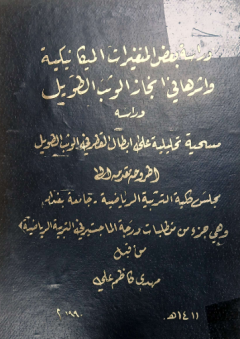 دراسة بعض المتغيرات الميكانيكية
واثرها في انجاز الوثب الطويل
دراسة
مسحية تحليلية على ابطال القطر في الوثب الطويل
اطروحة مقدمة الى
مجلس كلية التربية الرياضية - جامعة بغداد
وهي جزء من متطلبات درجة الماجستير في التربية الرياضية
من قبل
مهدي كاظم علي
١٤١١هـ ١٩٩٠م